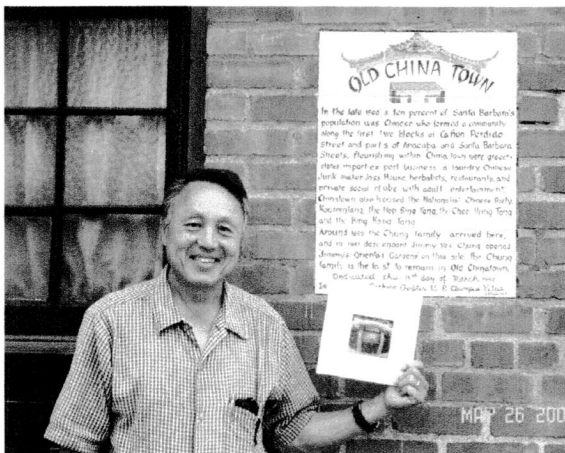 OLD CHINA TOWN
In the late 1800's ten percent of Santa Barbara's
population was Chinese who formed a community
along the first two blocks of Cañon Perdido
Street and parts of Anacapa and Santa Barbara
Streets. Flourishing within China town were
stores import-export business, a laundry Chinese
Junk maker Joss House, herbalists, restaurants, and
private social clubs with adult entertainment.
Chinatown also housed the Nationalist Chinese Party,
Kuomingtang, the Hop Sing Tong, the Chee Kung Tong
and the Bing Kong Tong.
Around the Chung family arrived here,
and in descendant Jimmy Yee Chung opened
Jimmy's Oriental Gardens on this site. The Chung
family is the last to remain in Old Chinatown.
Dedicated this day of March,
De la Guerra Chapter E Clampus Vitus
MAY 26 200